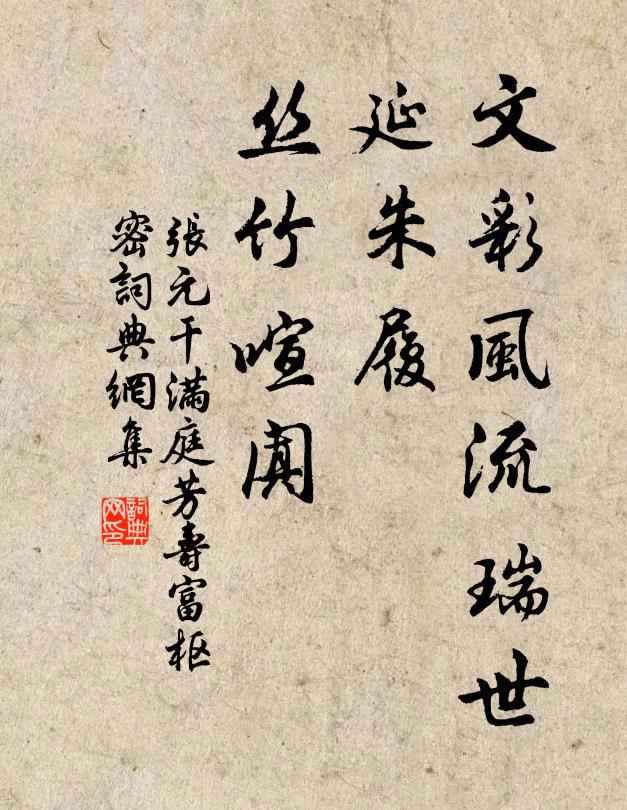 文彩風流瑞世
延朱履
丝竹喧阗
張元干滿庭芳壽富枢
密詞典網集
詞典网印